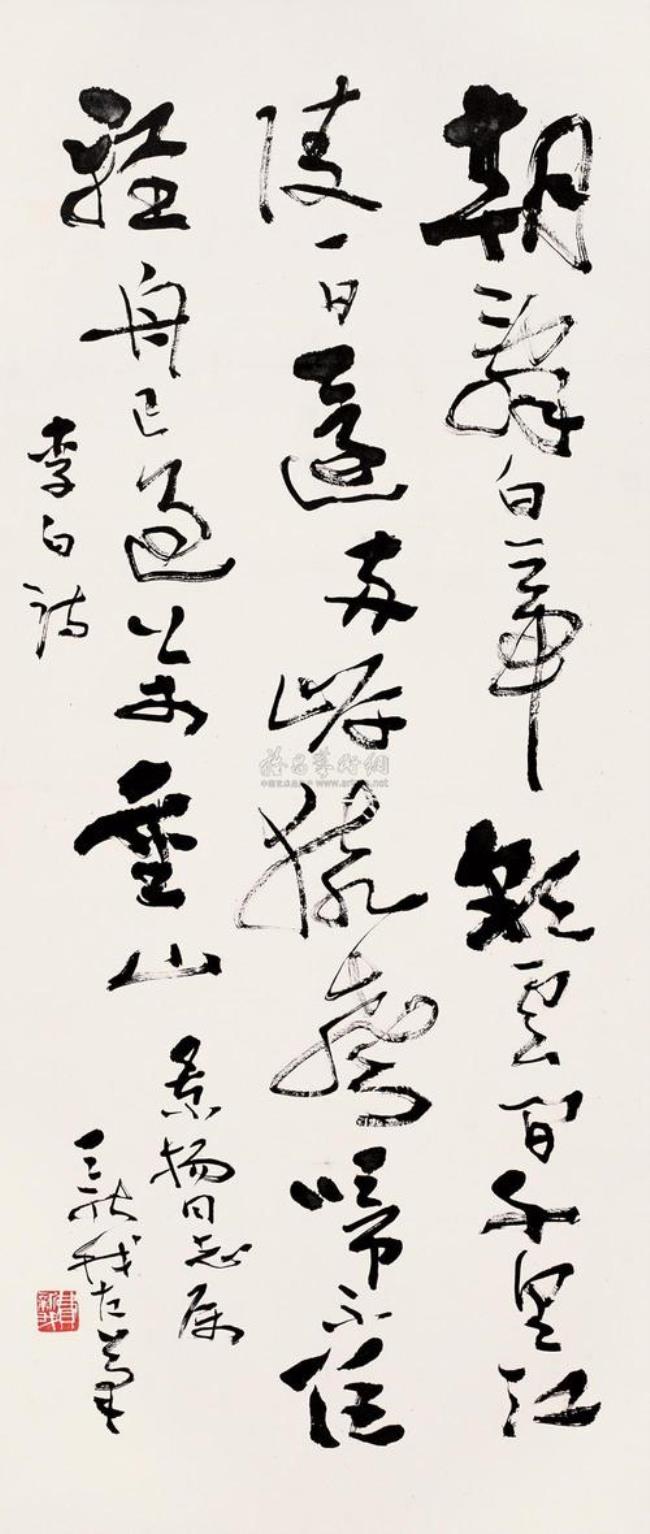 朝辭白帝彩雲間千里江
陵一日還兩岸猿聲啼不住
輕舟已過萬重山
李白詩
景揚同志属
新我左筆
費新我